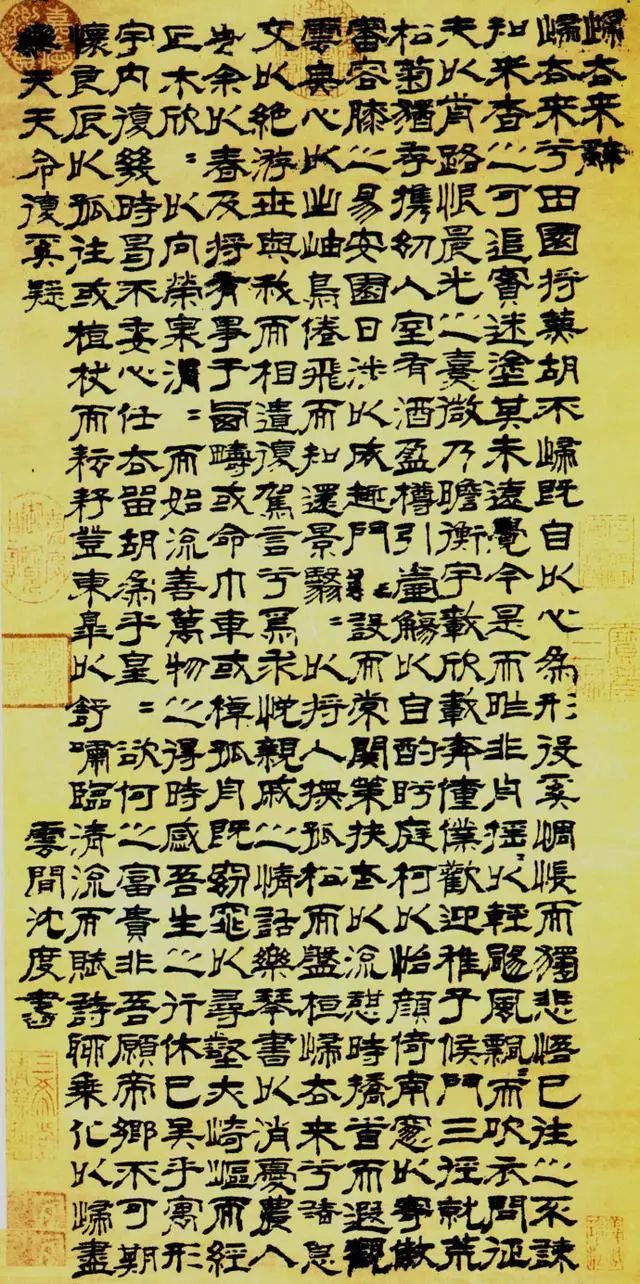 歸去来辭
歸去来兮田園將蕪胡不歸既自以心為形役奚惆悵而獨悲悟已往之不諫
知来者之可追實迷塗其未遠覺今是而昨非舟揺〻以輕颺風飄〻而吹衣問征
夫以前路恨晨光之熹微乃瞻衡宇載欣載奔僮僕歡迎稚子候門三徑就荒
松菊猶存攜幼入室有酒盈樽引壺觴以自酌眄庭柯以怡顏倚南窻以寄傲
審容膝之易安園日涉以成趣門雖設而常關策扶老以流憩時撟首而遐觀
雲無心以出岫鳥倦飛而知還景翳〻以將入撫孤松而盤桓歸去来兮請息
交以絕游世與我而相遺復駕言兮焉求悅親戚之情話樂琴書以消憂農人
告余以春及將有事于西疇或命巾車或棹孤舟既窈窕以尋壑亦崎嶇而經
丘木欣〻以向榮泉涓〻而始流善萬物之得時感吾生之行休已矣乎寓形
宇內復幾時曷不委心任去留胡為乎皇〻欲何之富貴非吾願帝鄉不可期
懷良辰以孤往或植杖而耘耔登東皋以舒嘯臨清流而賦詩聊乘化以歸盡
樂夫天命復奚疑
雲間沈度書